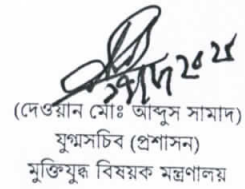 (দেওয়ান মোঃ আব্দুস সামাদ)
যুগ্মসচিব (প্রশাসন)
মুক্তিযুদ্ধ বিষয়ক মন্ত্রণালয়